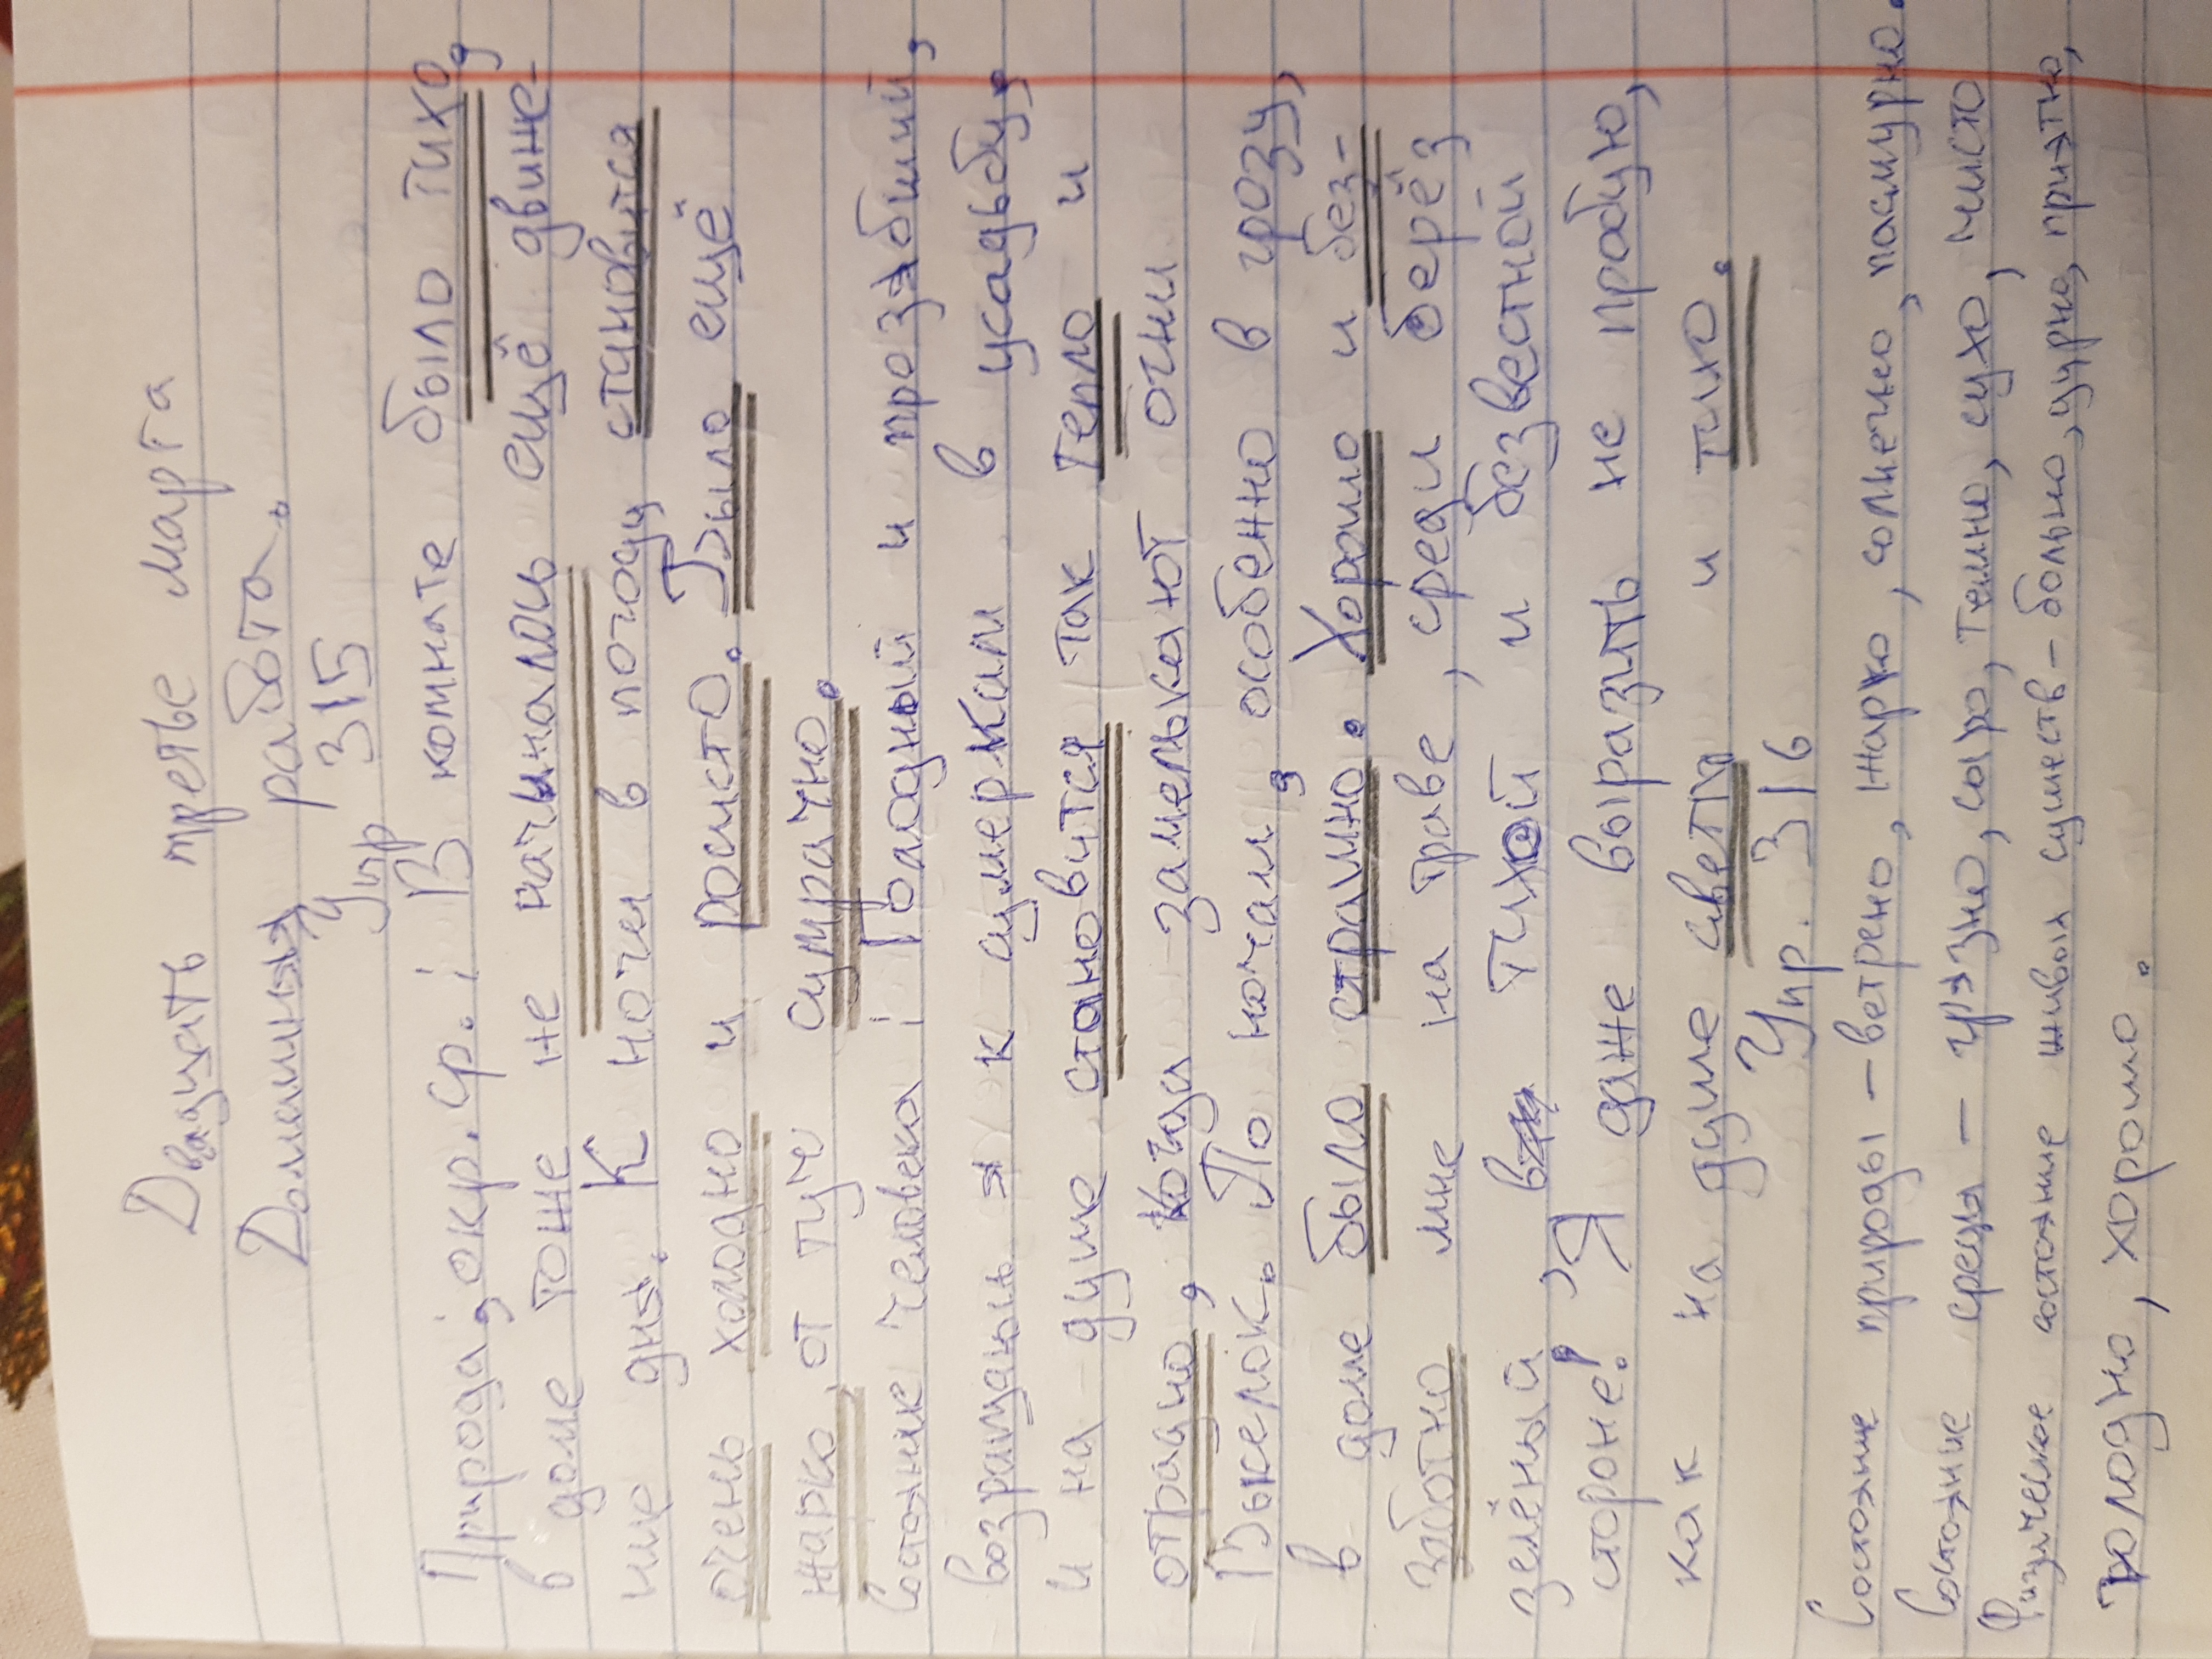 Двадцать третье марта
Домашняя работа.
Упр 315
Природа, окр. ср.: В комнате было тихо,
в доме тоже не начиналось ещё движе-
ние дня. К ночи в погоду становится
очень холодно и росисто. Было ещё
жарко, от туч сумрачно.
Состояние человека: Голодный и прозябший,
возращаешься к сумеркам в усадьбу,
и на душе становится так тепло и
отрадно, когда замелькают огни
Выселок. По ночам, особенно в грозу,
в доме было страшно. Хорошо и без-
заботно мне на траве, среди берёз
зелёный, в тихой и безвестной
стороне! Я даже выразить не пробую,
как на душе светло и тихо.
Упр. 316
Состояние природы - ветрено, жарко, солнечно, пасмурно.
Состояние среды - грязно, сыро, темно, сухо, чисто
Физическое состояние живых существ - больно, дурно, приятно,
холодно, хорошо.